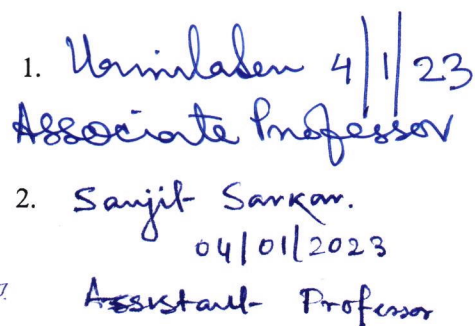 1. Urmila Sen 4/1/23
Associate Professor
2. Sanjit Sarkar.
04/01/2023
Assistant Professor